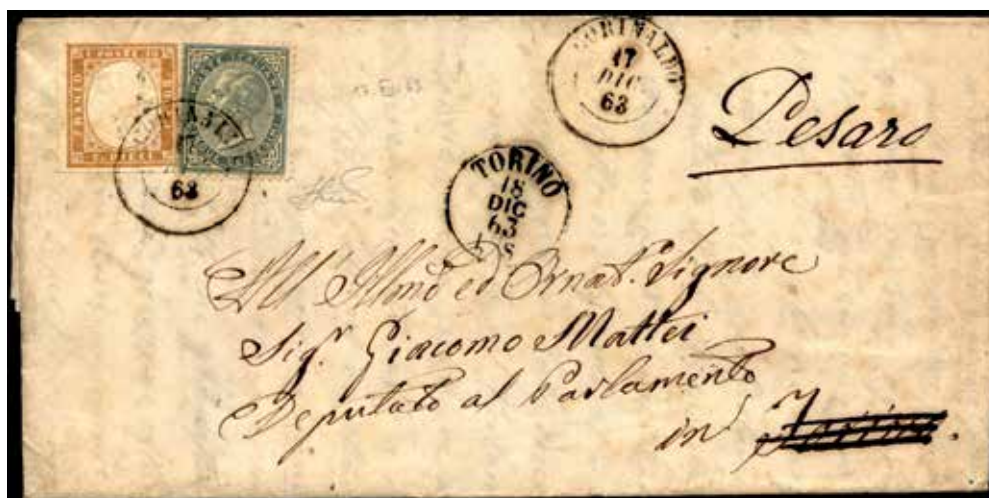 CORINALDO
17
DIC
63
Pesaro
TORINO
18
DIC
63
FRANCO
63
All' Illmo ed Ornat. Signore
Sigr. Giacomo Mattei
Deputato al Parlamento
in Torino.